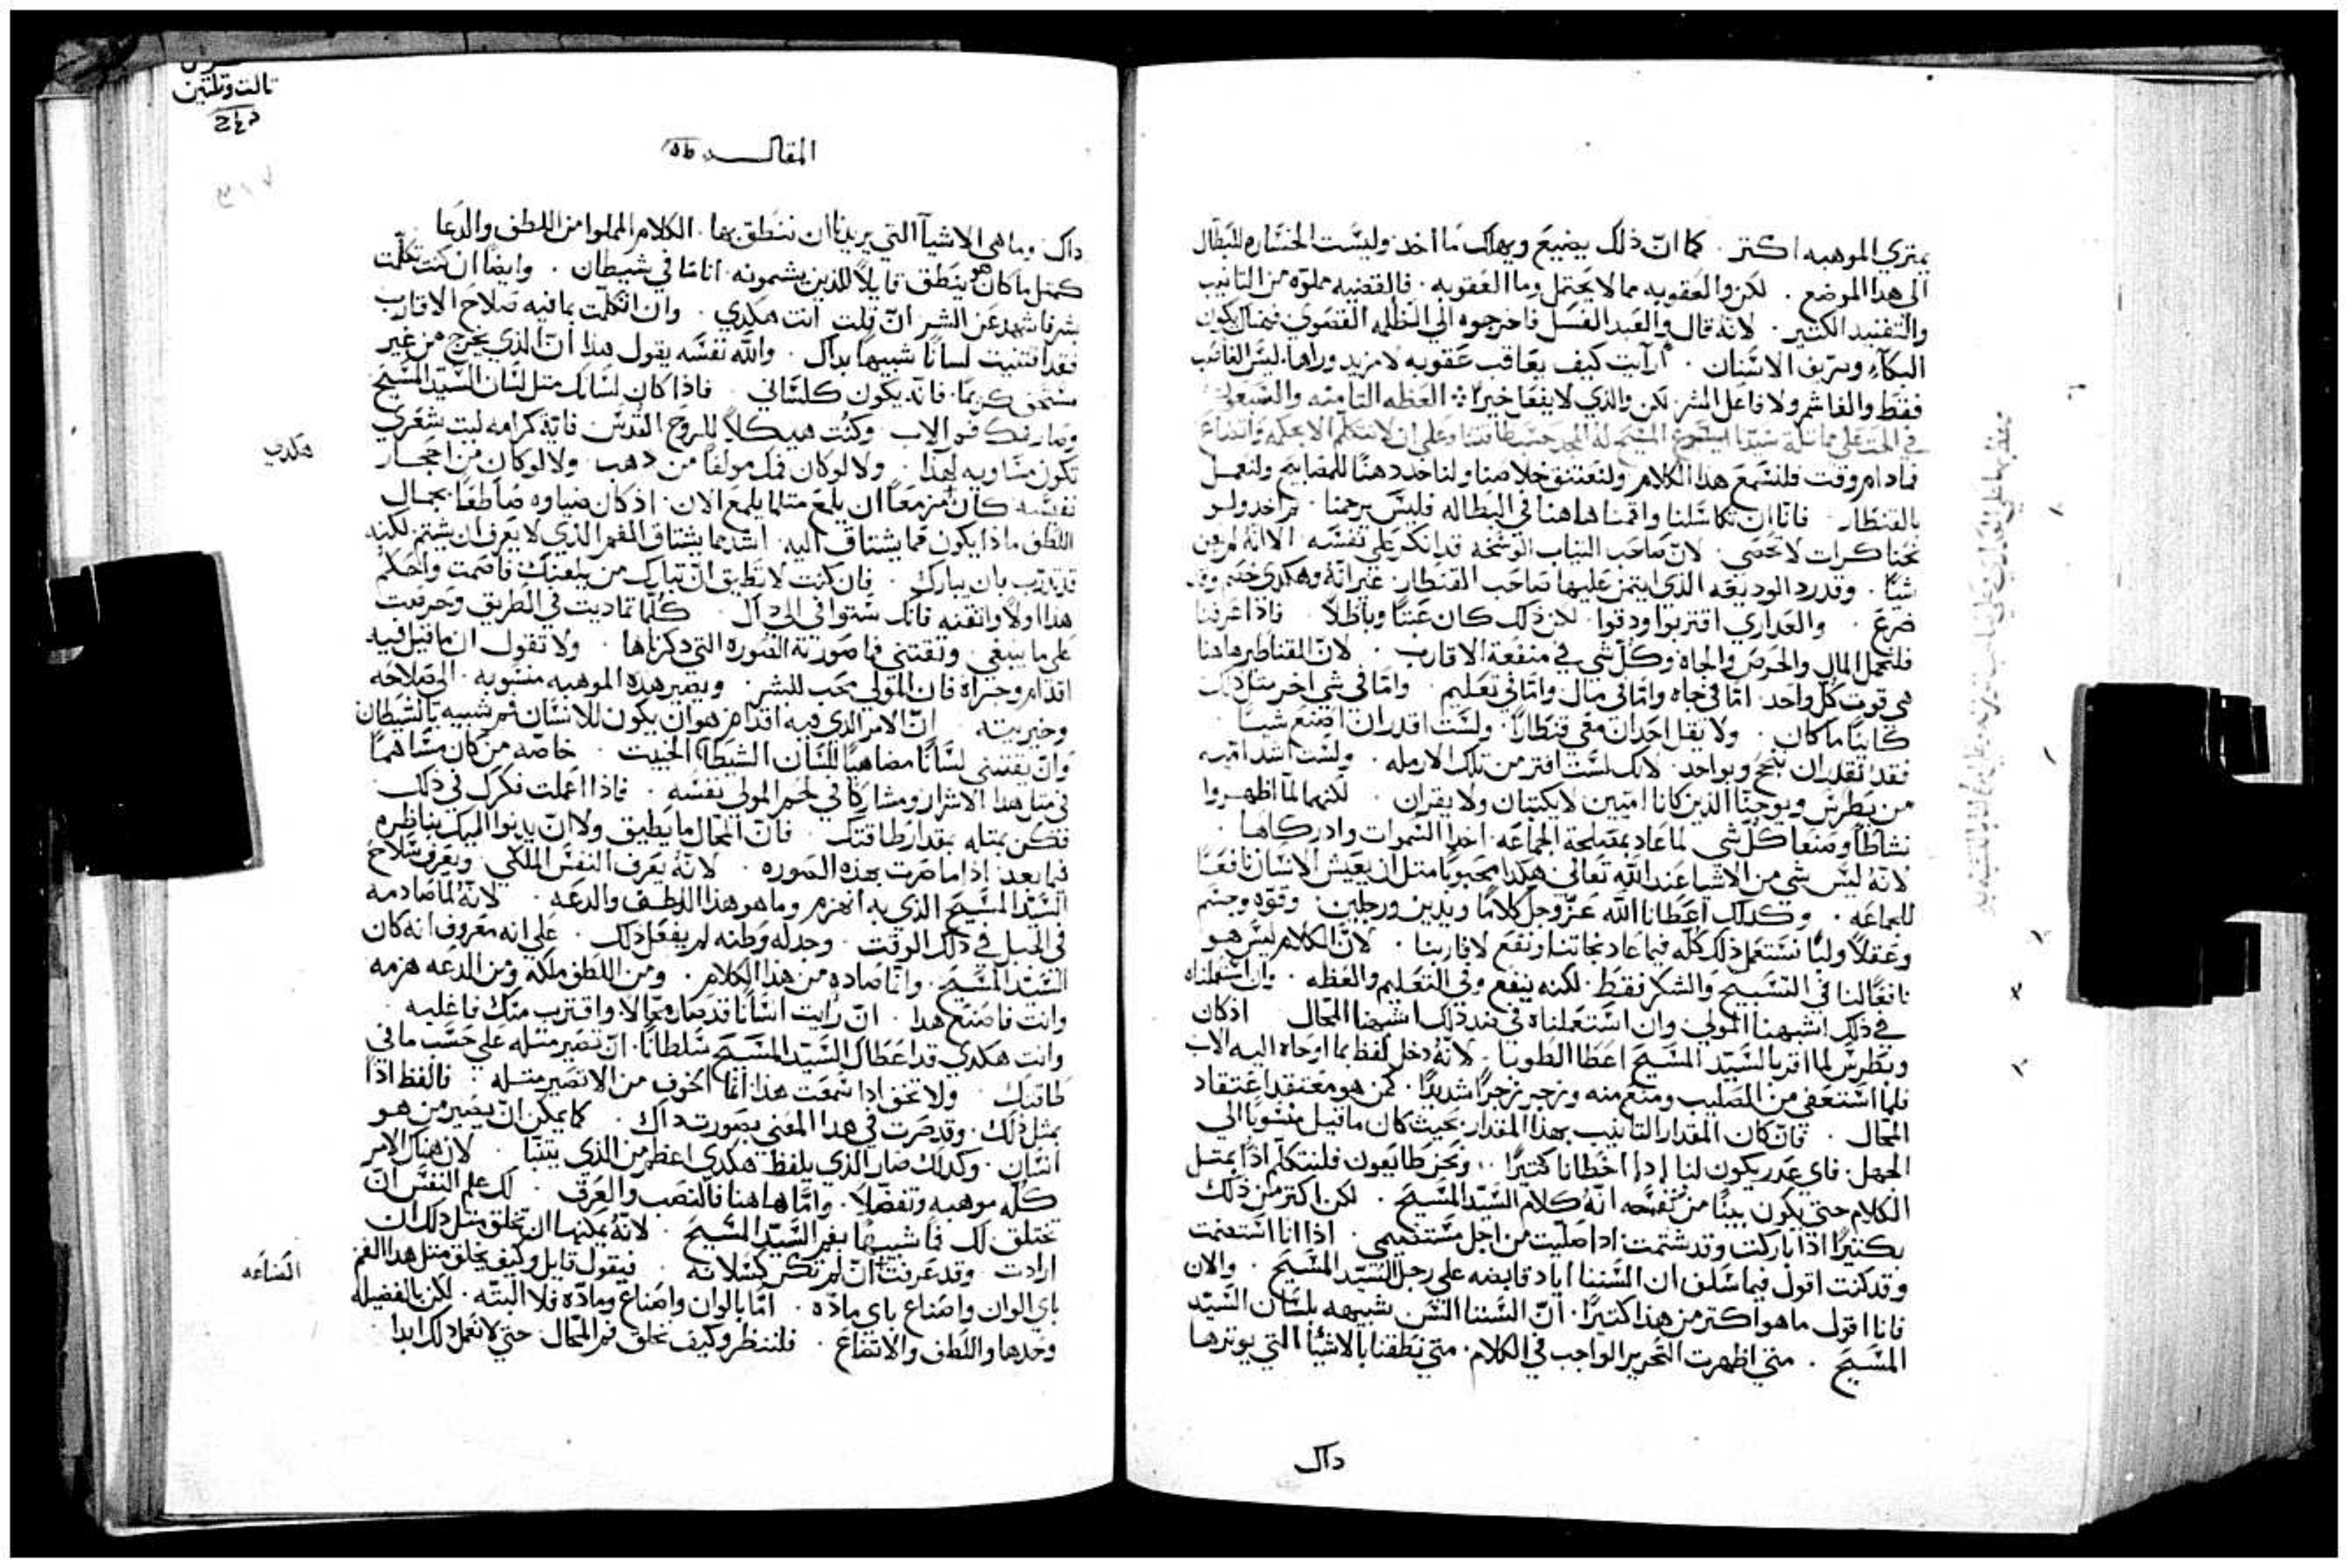 يمتري الموهبه اكتر . كما انّ ذلك يضيع ويهلك ما اخد وليست الخساره للبطال
الى هدا الموضع . لكن والعقوبه مما لا يحتمل وما العقوبه . فالقضيه مملوّه من التانيب
والتفنيد الكتير . لانّه قال والعبد الفسل فاخرجوه الي الظلمه القصوي فهناك يكون
البكآء وصريف الاسنان . ارآيت كيف يعاقب عقوبه لا مزيد وراها . ليس الغاصب
فقط والغاشم ولا فاعل الشر لكن والذي لا يفعل خيراً ۞ العظه التامنه والسبعون
فما دام وقت فلنسمع هدا الكلام ولنعتنق خلاصنا ولناخد دهنًا للمصابيح ولنعمل
بالقنطار . فانّا ان تكاسلنا واقمنا هاهنا في البطاله فليس يرحمنا . احد ولو
نحنا كرات لا تحصى . لانّ صاحب التياب الوسخه قد انكر على نفسه الا انّه لم يعن
شيًا . وقد رد الوديعه الذي ايتمن عليها صاحب القنطار . غير انّه وهكدي خصم وقد
ضرع . والعداري اقتربوا ودقوا . لان ذلك كان عبتًا وباطلاً . فاذا عرفنا
فلنحمل المال والحرص والجاه وكل شي في منفعة الاقارب . لانّ القناطير هاهنا
هي قوت كل واحد . امّا في جاه وامّا في مال وامّا في تعليم . وامّا في شي اخر متل ذلك
كاينًا ما كان . ولا يقل احد ان معي قنطارًا . ولست اقدر ان اصنع شيًا .
فقد تقدر ان تنجح وبواحد . لانك لست افقر من تلك الارمله . ولست اشد اميه
من بطرس ويوحنّا الذين كانا اميين لا يكتبان ولا يقران . لكنهما لمّا اظهروا
نشاطًا وصنعا كل شي لما عاد بمصلحة الجماعه . اخدا السموات وادركاها .
لانّه ليس شي من الاشيا عند الله تعالي هكدا محبوبًا متل ان يعيش الانسان نافعًا
للجماعه . وكدلك اعطانا الله عزّ وجل كلامًا ويدين ورجلين . وقوّة وجسم
وعقلاً ولبًا نستعمل ذلك كلّه فيما عاد نجاتنا ونفع لاقاربنا . لانّ الكلام ليس هو
نافعًا لنا في التسبيح والشكر فقط . لكنه ينفع وفي التعليم والعظه . وان استعملناه
في ذلك اشبهنا المولى وان استعملناه في ضد ذلك اشبهنا المحّال . اذ كان
وبطرس لما اقر بالسّيد المسيح اعطا الطوبا . لانّه دخل لفظ بما اوحاه اليه الاب
فلما استعفي من الصليب ومنع منه وزجر زجرًا شديدًا . كمن هو معتقد اعتقاد
المحّال . فان كان المقدار التانيب بهذا المقدار بحيث كان ما قيل منسوبًا الي
الجهل . فاي عدر يكون لنا إدا اخطانا كتيرًا . ونحن طايعون فلنتكلم اذًا بمتل
الكلام حتي يكون بينًا من نفسه انّه كلام السّيد المسيح . لكن اكتر من ذلك
بكتير اذا باركت وقد شتمت ادا صليت من اجل مستقصمي . اذا انا استعنت
وقد كنت اقول فيما سلف ان السننا اياد قابضه على رجل السّيد المسيح . والان
فانا اقول ما هو اكتر من هذا كتيرًا . انّ السننا السن شبيهه بلسان السّيد
المسيح . متي اظهرت التحرير الواجب في الكلام . متي نطقنا بالاشيا التي يوترها
داك
تالت وتلتين
المقاله
داك . وما هي الاشيآ التي يريدنا ان ننطق بها . الكلام المملوا من اللطف والدعا
كمتل ما كان هو ينطق قايلاً للذين يشتمونه . انا ما في شيطان . وايضًا ان كنت تكلّمت
بشر فاشهد عن الشر . وان انكلّمت بما فيه صلاح الاقارب
فقد اقتنيت لسانًا شبيهًا بداك . والله نفسه يقول هذا انّ الذي يخرج من غير
مستحق كريمًا . فانّه يكون كلساني . فاذا كان لسانك متل لسان السّيد المسيح
وصار فمك فم الاب . وكنت هيكلاً للروح القدس فايّة كرامه ليت شعري
هكدي
تكون مساويه لهدا . ولا لو كان فمك مولفًا من دهب . ولا لو كان من احجار
نفيسه كان مزمعًا ان يلمع متلما يلمع الان . اذ كان ضياوه ساطعًا بجمال
اللطف ماذا يكون فمًا يشتاق اليه . اشد مما يشتاق الفم الذي لا يعرف ان يشتم لكنه
قد تدرّب بان يبارك . فان كنت لا تطيق ان تبارك من يلعنك فاصمت واحكم
هدا اولاً واتقنه فانّك ستوافي الى داك . كلّما تماديت في الطريق وحرصت
على ما ينبغي . وتقتني فما صورته الصوره التي دكرناها . ولا تقول ان ما قيل فيه
اقدام وجراه فان المولى محب للبشر . وتصير هده الموهبه منسوبه . الى صلاحه
وخيريته . انّ الامر الذي فيه اقدام هو ان يكون للانسان فم شبيه بالشيطان
وان يقتني لسانًا مضاهيًا للسان الشيطان الخبيت . خاصّه من كان مساهمًا
في متل هدا الاسرار ومشاركًا في لحم المولى نفسه . فاذا اعملت فكرك في ذلك
فكن بمتله بمقدار طاقتك . فان المحّال ما يطيق ولا انّ يدنوا اليك بناظره
فيما بعد . إذا ما صرت بهده الصوره . لانّه يعرف النفس الملكي . ويعرف سلاح
السّيد المسيح الذي به انهزم وما هو هدا اللطف والدعه . لانّه لما صادمه
في الجبل في ذلك الوقت . وجد له وطنه لم يفعل ذلك . على انه معروف انه كان
السّيد المسيح . وانما صاده من هذا الكلام . ومن اللطف ملكه ومن الدعه هزمه
وانت فاصنع هدا . انّ رايت انسانًا قد صار محّالاً . واقترب منك فاغلبه .
وانت هكدي قد اعطاك السّيد المسيح سلطانًا . انّ تصير متله على حسب ما في
طاقتك . ولا تخف اذا سمعت هذا . انما الخوف من الا تصير متله . فالفظ اذًا
بمثل ذلك . وقد صرت في هدا المعني بصورت داك . كما يمكن انّ يصير من هو
انسان . وكدلك صار الذي يلفظ هكدي اعظم من الذي يتنبا . لان هناك الامر
كلّه موهبه وتفضّلاً . وامّا هاهنا فالتعب والعرق . لك علم النفس انّ
تختلق لك فمًا شبيهًا بفم السّيد المسيح . لانّه يمكنها ان تخلق متل ذلك ان
ارادت . وقد عرفت انّ لم تكن كسلانه . فيقول قايل وكيف يخلق متل هدا الفم
الصناعه
باي الوان واصناع باي مادّه . امّا بالوان واصناع ومادّه فلا البتّه . لكن بالفضيله
وحدها واللطف والاتضاع . فلننظر وكيف يخلق فم المحّال حتي لا نعمل ذلك ابدا